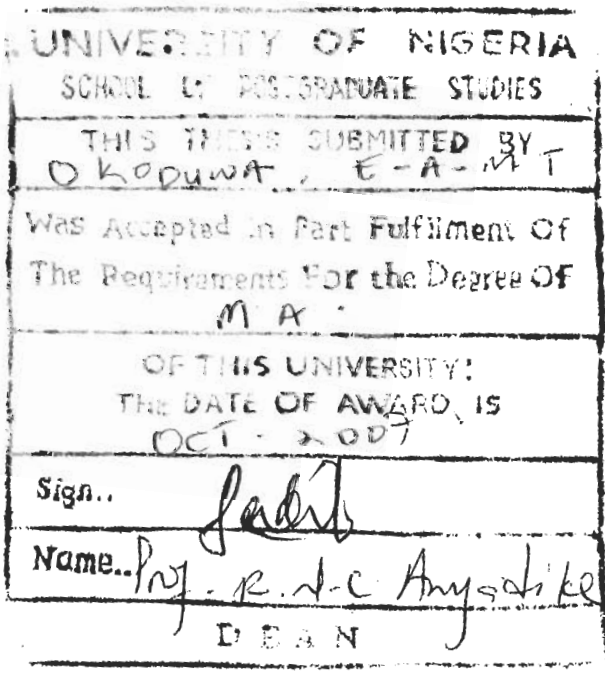 UNIVERSITY OF NIGERIA
SCHOOL OF POSTGRADUATE STUDIES
THIS THESIS SUBMITTED BY
OKODUWA, E-A-M T
Was Accepted in Part Fulfilment Of
The Requirements For the Degree Of
M A.
OF THIS UNIVERSITY:
THE DATE OF AWARD IS
OCT - 2007
Sign..
Name.. Prof. R. N-C Anyadike
DEAN